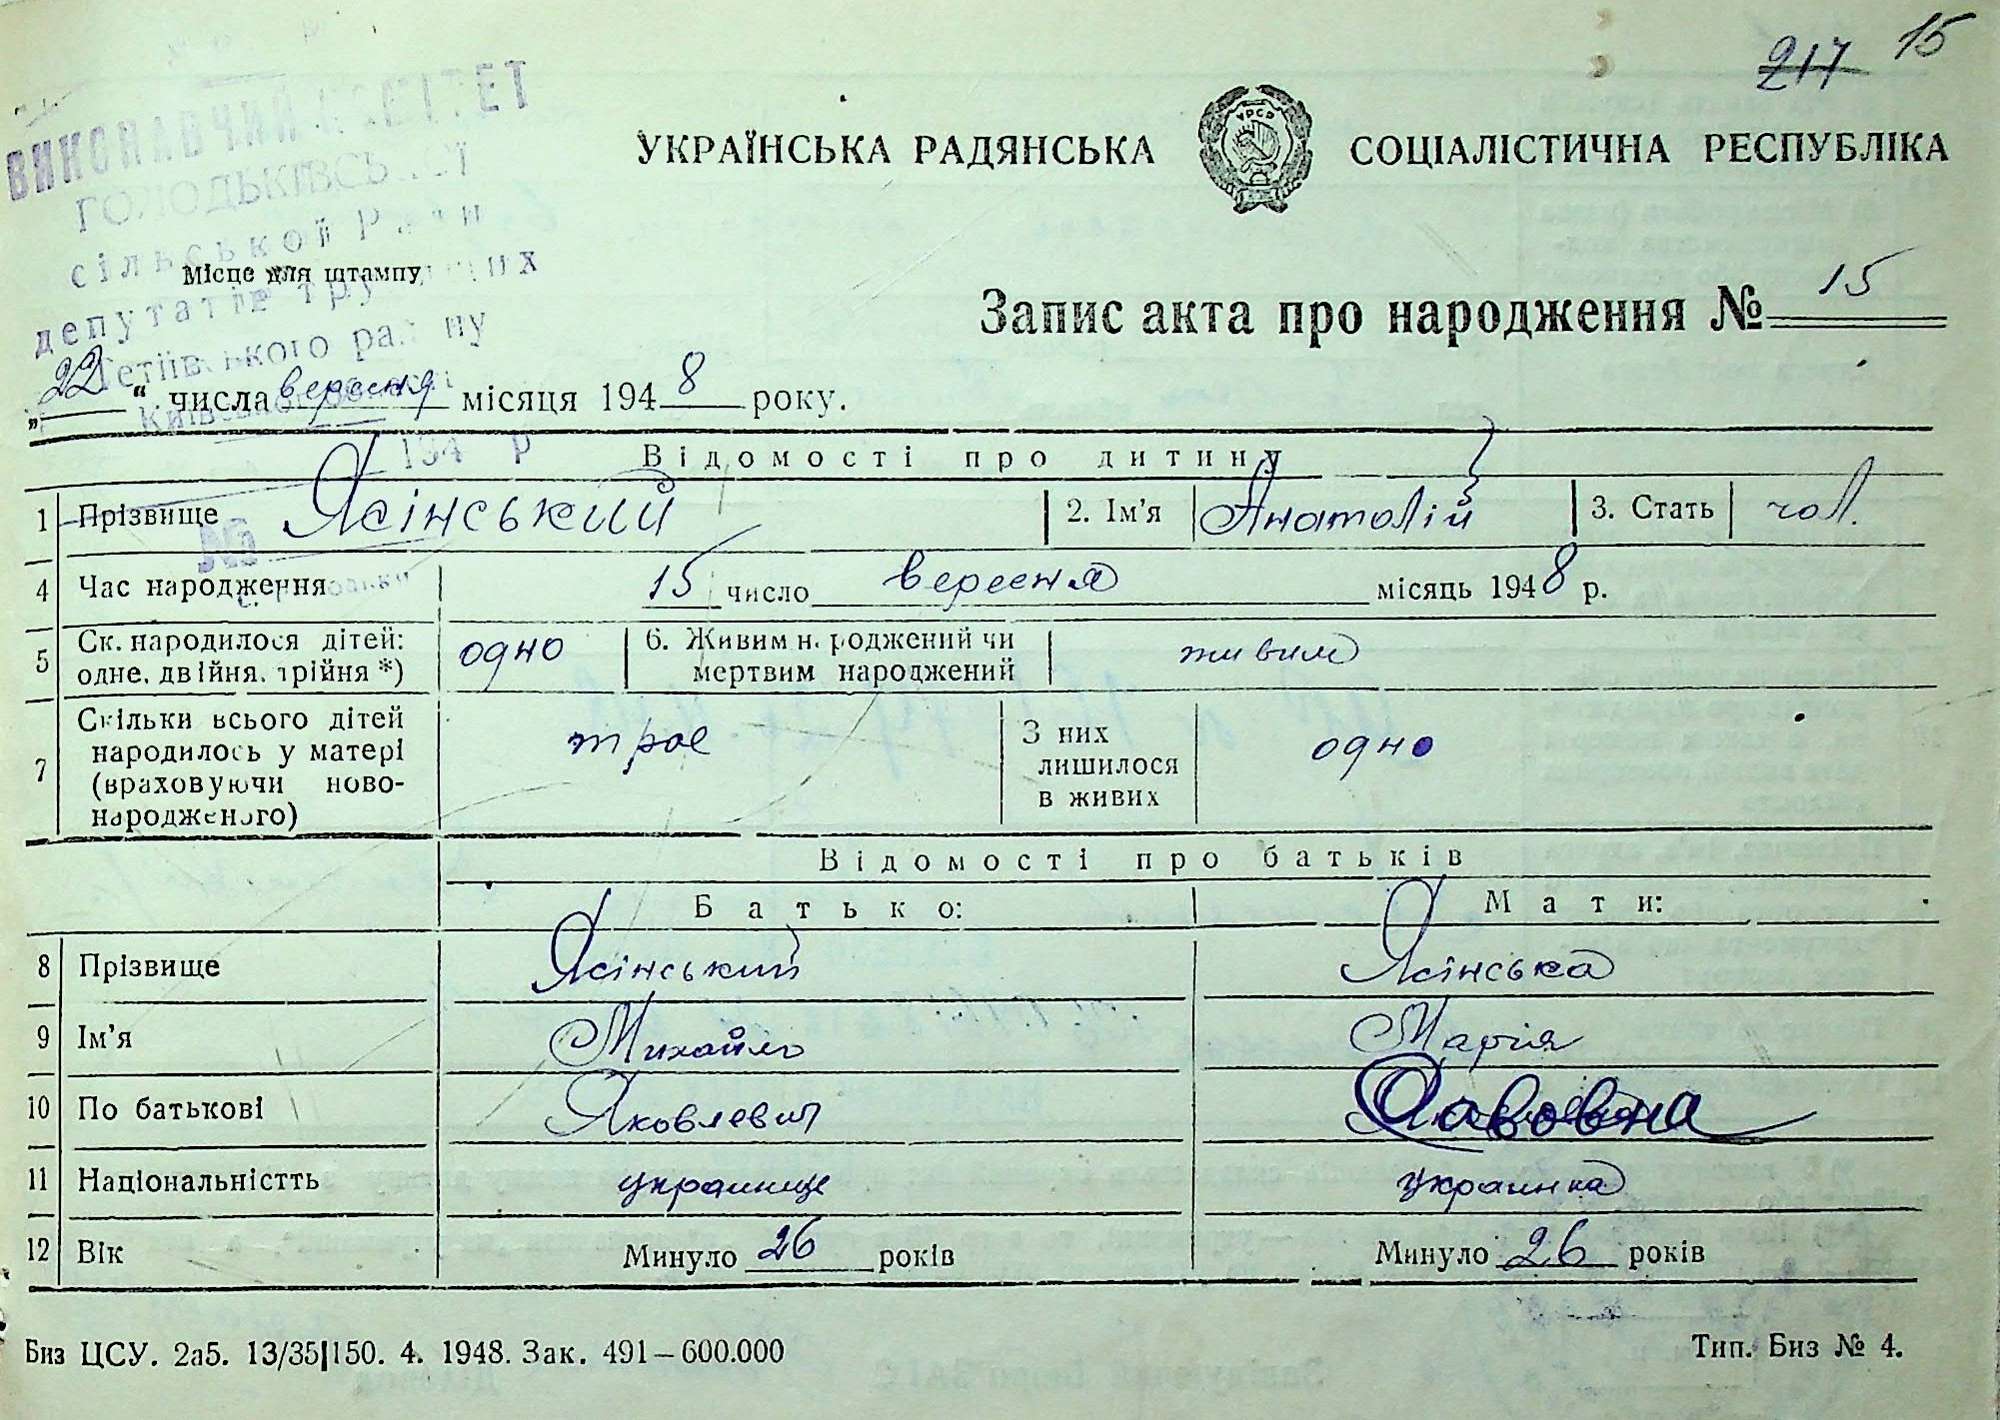 217 15
ВИКОНАВЧИЙ КОМІТЕТ
ГОЛОДЬКІВСЬКОЇ
сільської Ради
депутатів трудящих
Тетіївського району
Київської
194 р
№
УКРАЇНСЬКА РАДЯНСЬКА СОЦІАЛІСТИЧНА РЕСПУБЛІКА
УРСР
Місце для штампу
Запис акта про народження № 15
„22“ числа вересня місяця 1948 року.
Відомості про дитину
1 Прізвище Ясінський 2. Ім'я Анатолій 3. Стать чол.
4 Час народження 15 число вересня місяць 1948 р.
5 Ск. народилося дітей: одно 6. Живим народжений чи живим
одне, двійня, трійня *) мертвим народжений
7 Скільки всього дітей троє З них одно
народилось у матері лишилося
(враховуючи ново- в живих
народженого)
Відомості про батьків
Батько: Мати:
8 Прізвище Ясінський Ясінська
9 Ім'я Михайло Марія
10 По батькові Яковлевич Савовна
11 Національністть украинце украинка
12 Вік Минуло 26 років Минуло 26 років
Биз ЦСУ. 2а5. 13/35|150. 4. 1948. Зак. 491–600.000 Тип. Биз № 4.